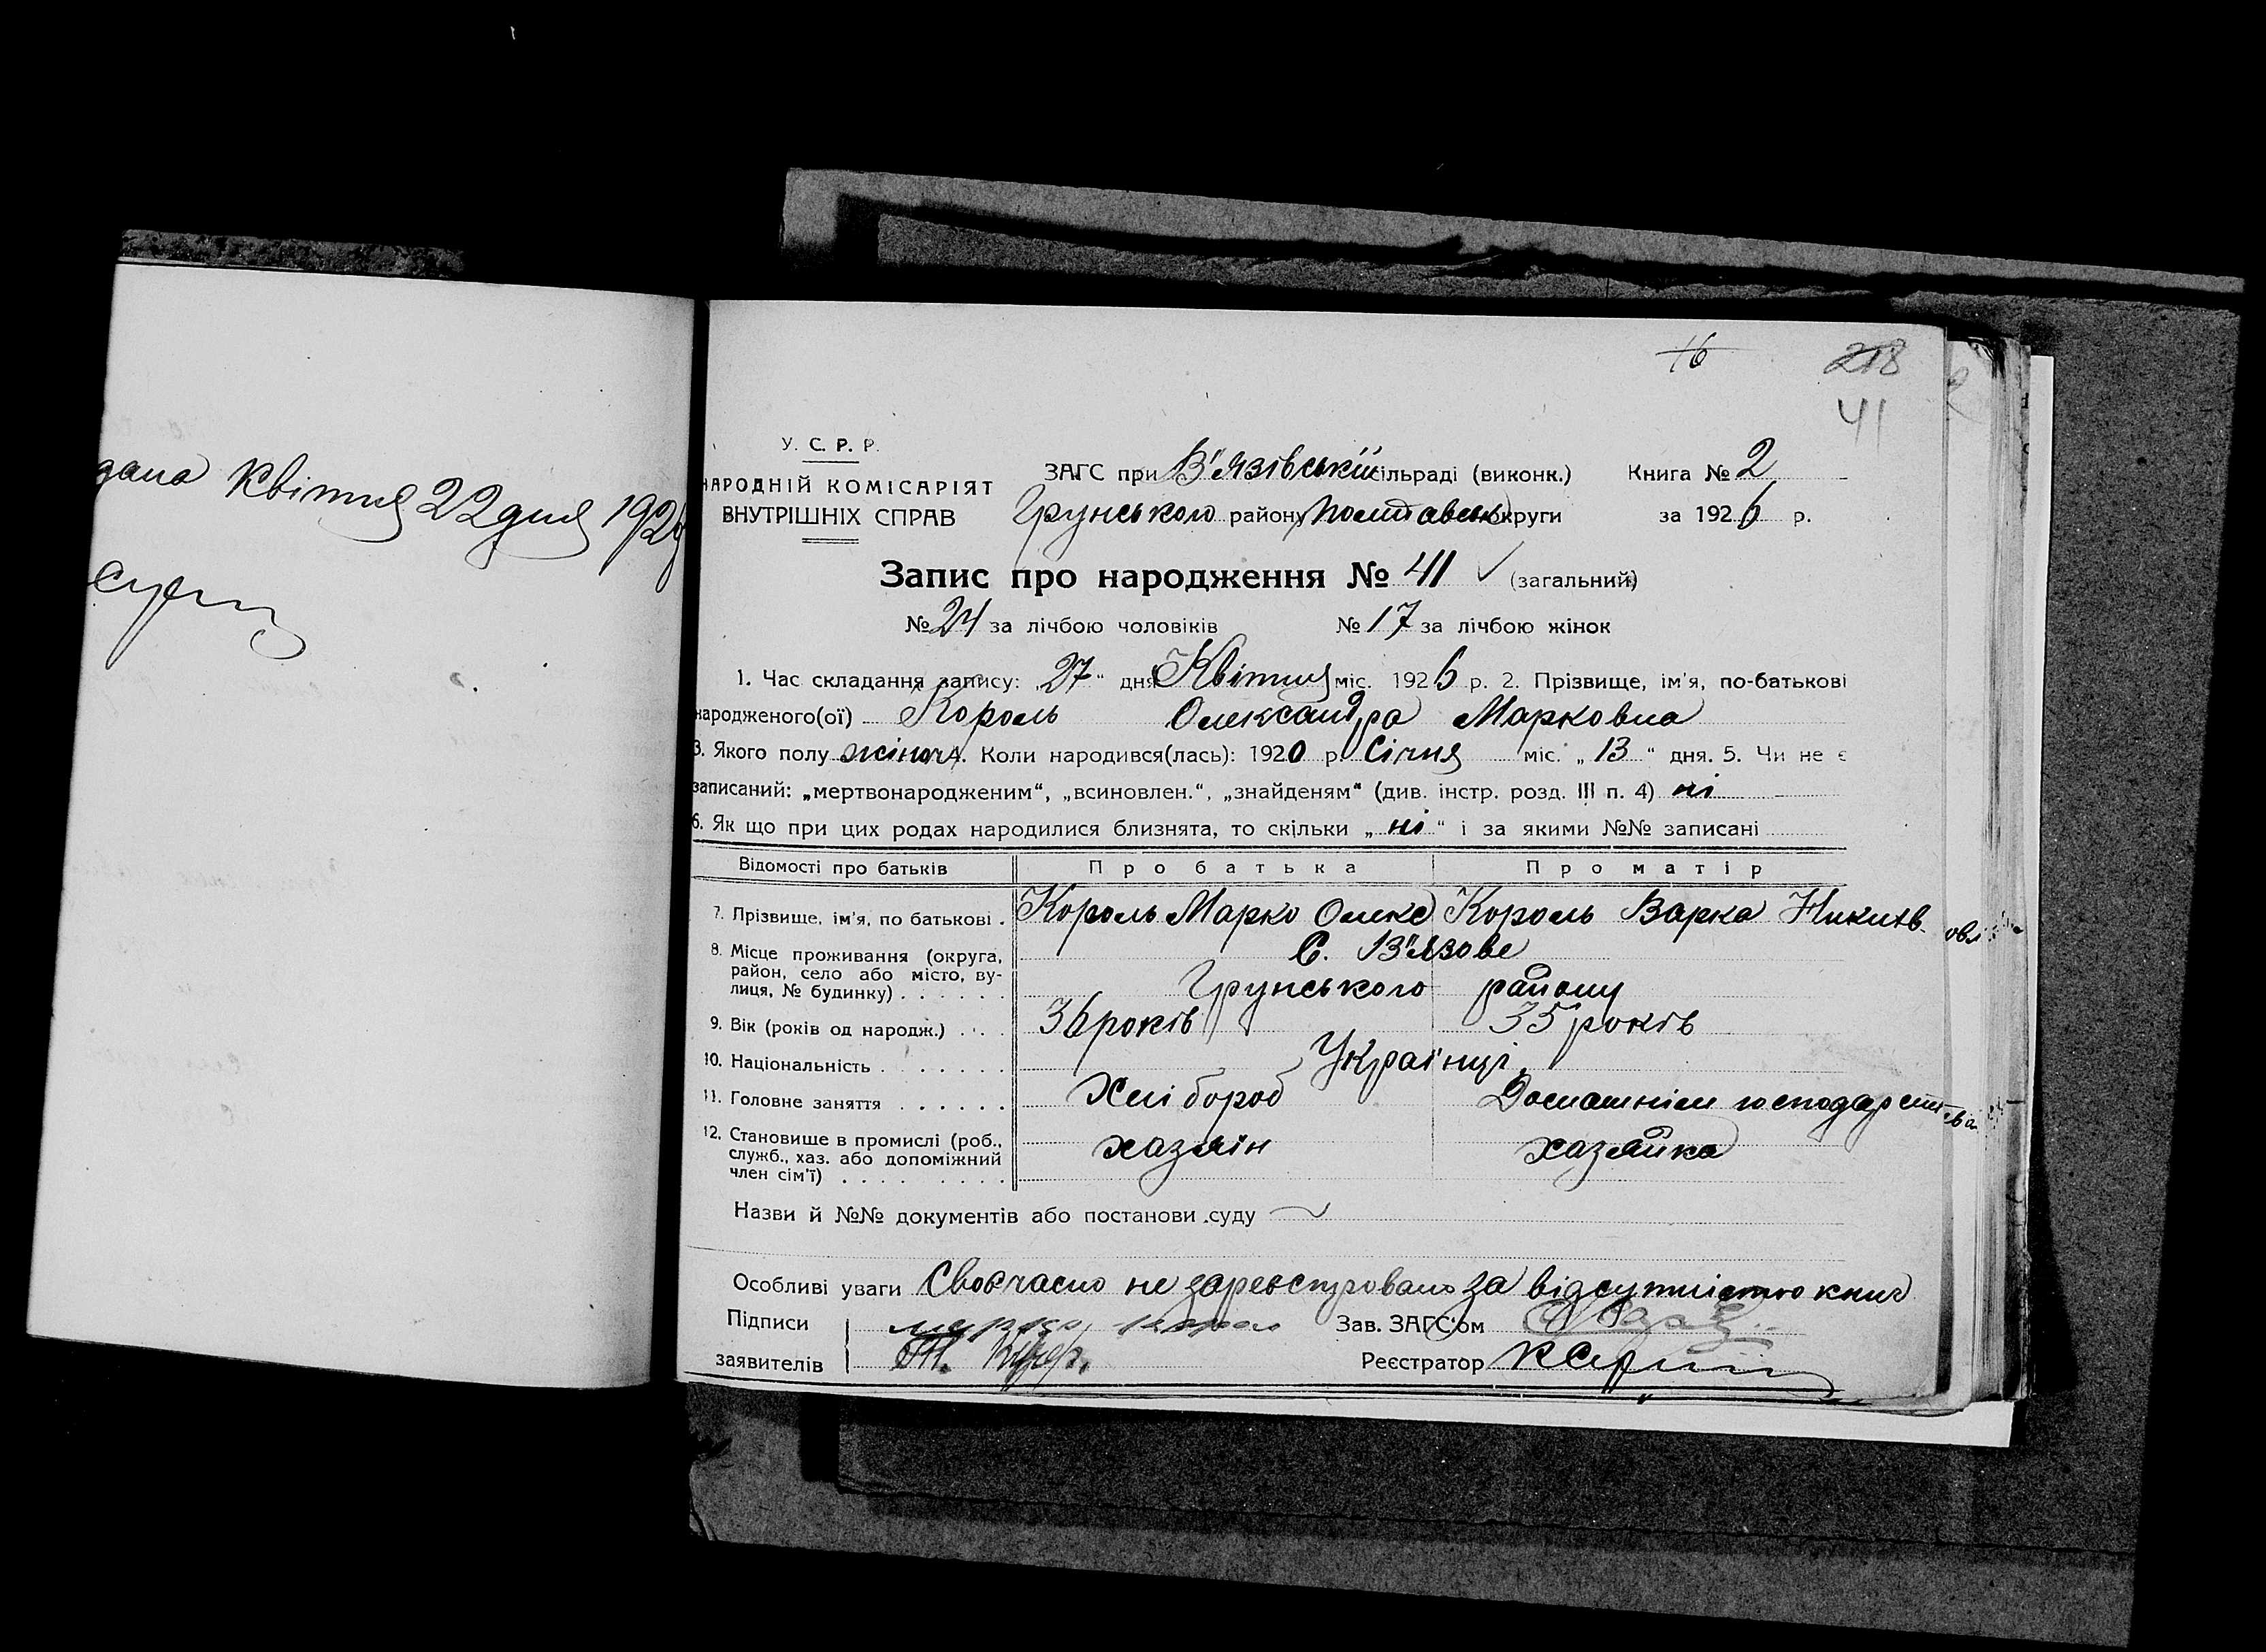 дана Квітня 22 дня 192
16
218
41
У. С. Р. Р.
НАРОДНІЙ КОМІСАРІЯТ
ВНУТРІШНІХ СПРАВ
ЗАГС при В'язівській сільраді (виконк.) Книга № 2
Грунського району Полтавськ округи за 1926 р.
Запис про народження № 41 (загальний)
№ 24 за лічбою чоловіків № 17 за лічбою жінок
1. Час складання запису: „27“ дня Квітня міс. 1926 р. 2. Прізвище, ім'я, по-батькові
народженого(ої) Король Олександра Марковна
3. Якого полу жіноч. 4. Коли народився(лась): 1920 р. Січня міс. „13“ дня. 5. Чи не є
записаний: „мертвонародженим“, „всиновлен.“, „знайденям“ (див. інстр. розд. III п. 4) ні
6. Як що при цих родах народилися близнята, то скільки „ні“ і за якими №№ записані
Відомості про батьків Про батька Про матір
7. Прізвище, ім'я, по батькові . Король Марко Олекс Король Варка Никитв.
8. Місце проживання (округа, район, село або місто, вулиця, № будинку) . . . . . . С. В'язове
Грунського району
9. Вік (років од народж.) . . . 36 років 35 років
10. Національність . . . . . . . Українці
11. Головне заняття . . . . . . Хлібороб Домашнім господарства
12. Становище в промислі (роб., служб., хаз. або допоміжний член сім'ї) . . . . . . . . . хазяїн хазяйка
Назви й №№ документів або постанови суду
Особливі уваги Своєчасно не зареєстровано за відсутністю книг
Підписи Зав. ЗАГС'ом
заявителів Реєстратор